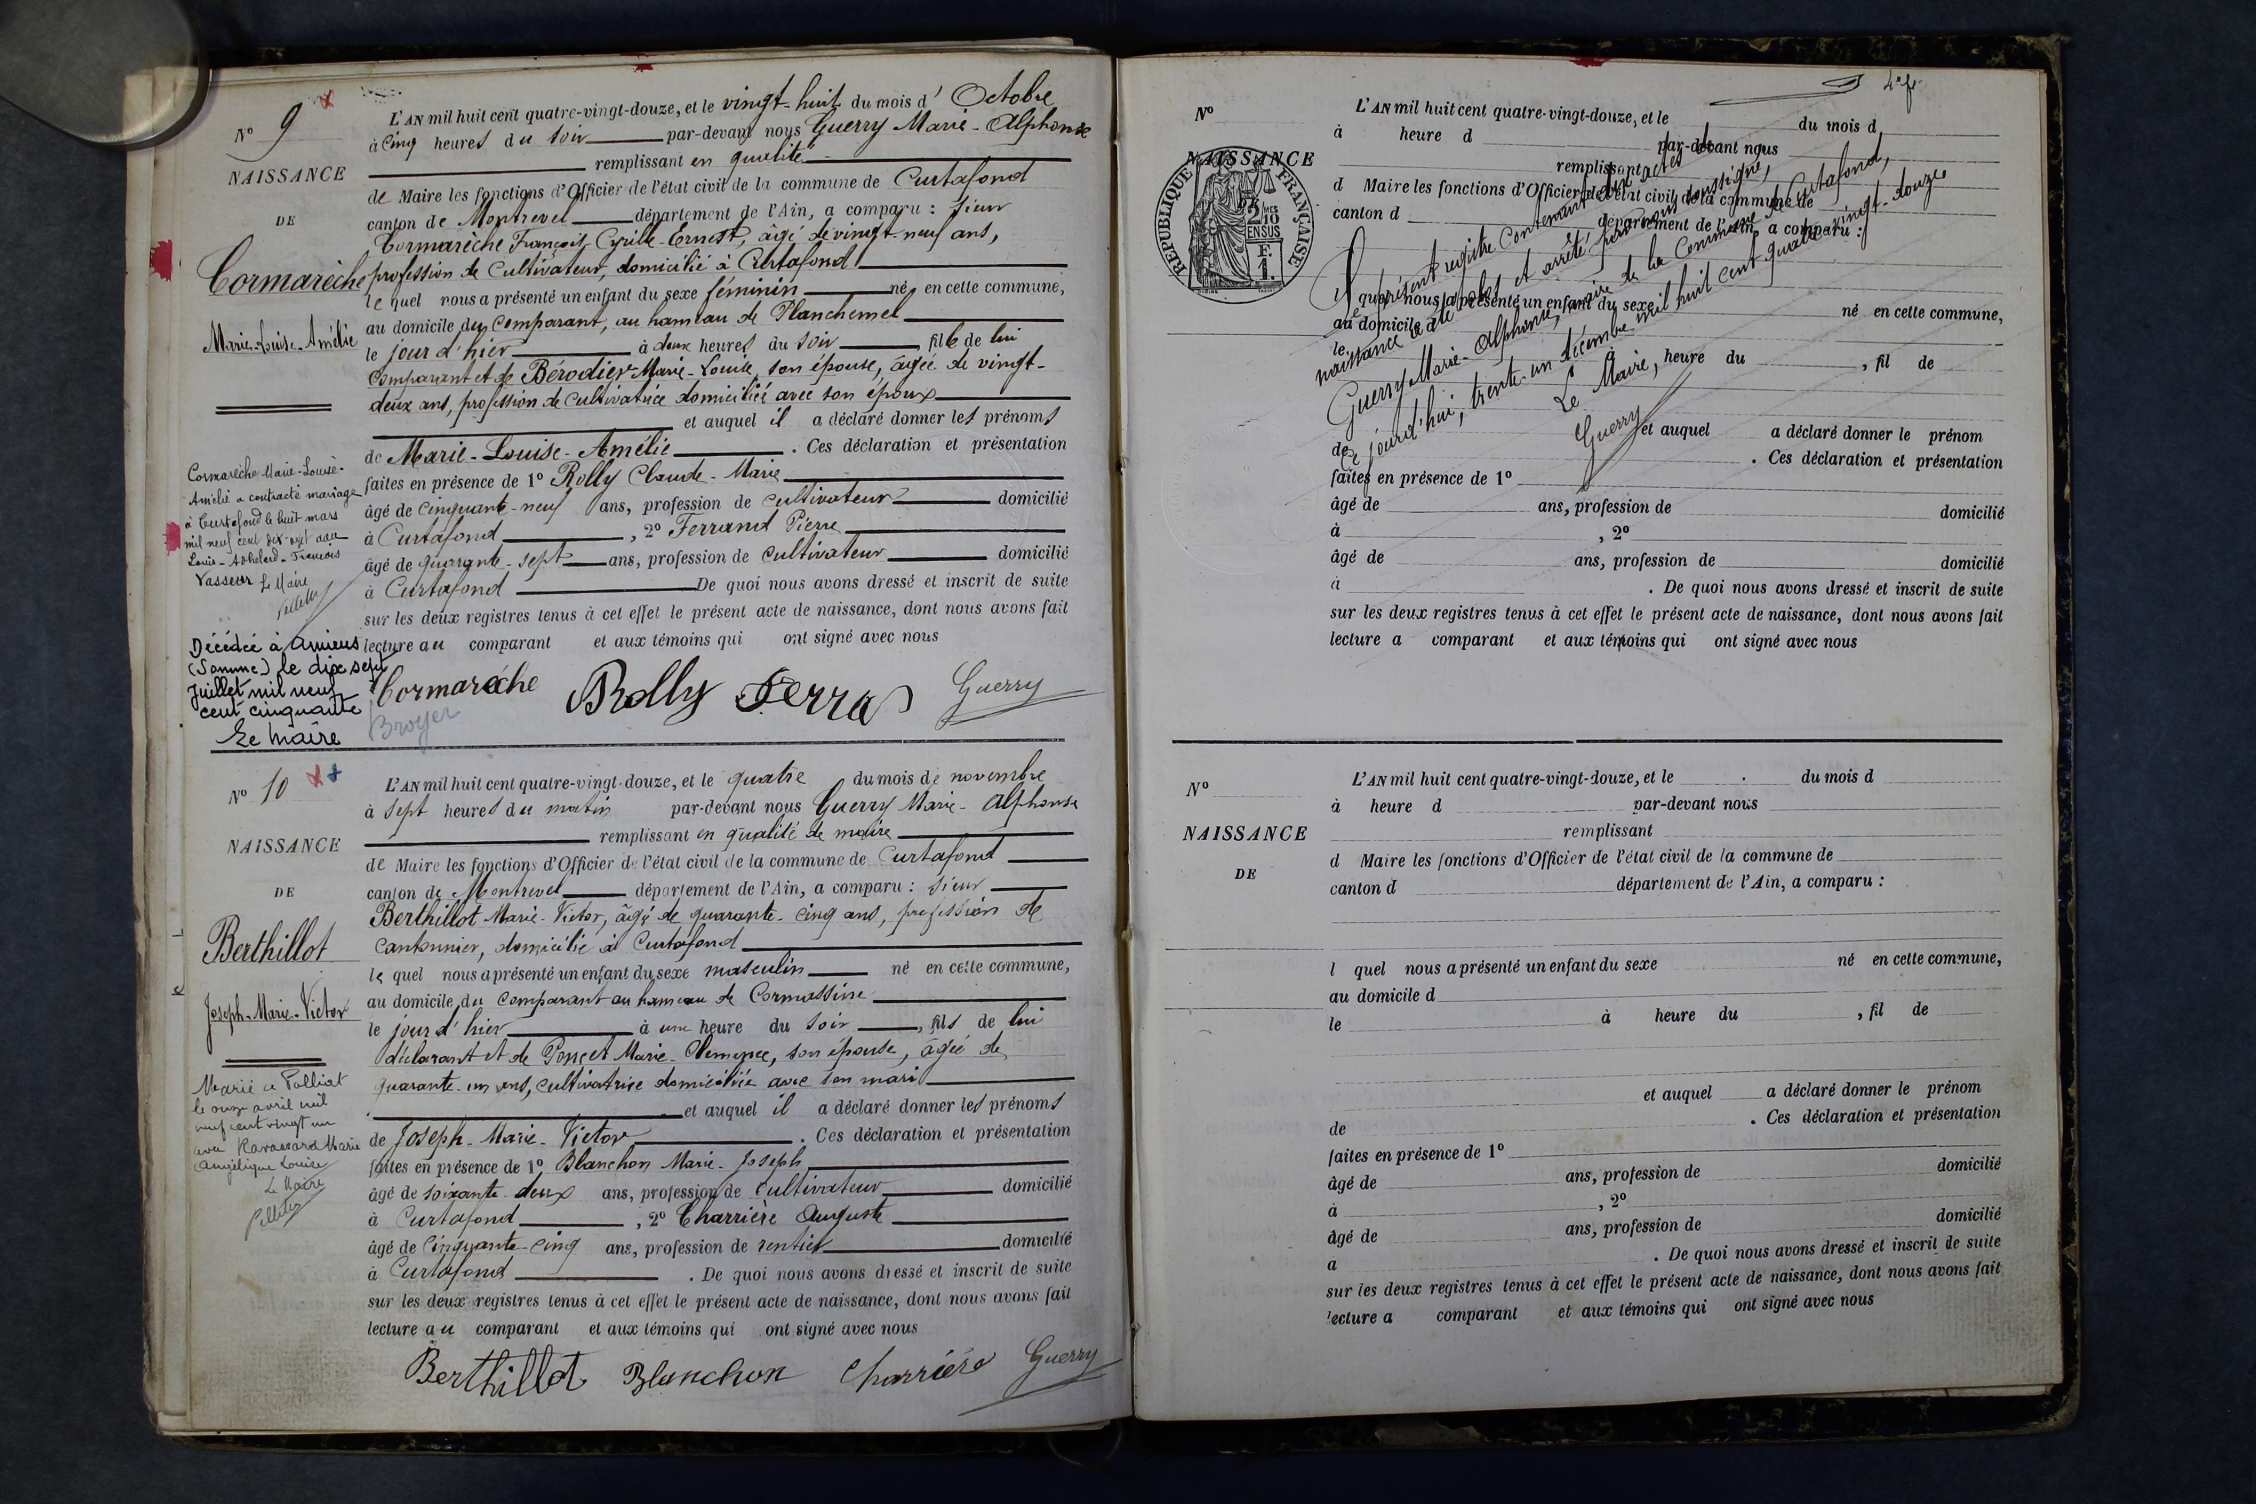 N° 9
NAISSANCE
DE
Cormarèche
Marie-Louise-Amélie
L'AN mil huit cent quatre-vingt-douze, et le vingt-huit du mois d'Octobre
à cinq heures du soir par-devant nous Guerry Marie-Alphonse
remplissant en qualité
de Maire les fonctions d'Officier de l'état civil de la commune de Curtafond
canton de Montrevel département de l'Ain, a comparu : sieur
Cormarèche François Cyrille-Ernest, âgé de vingt-neuf ans,
profession de Cultivateur, domicilié à Curtafond
le quel nous a présenté un enfant du sexe féminin né en cette commune,
au domicile du comparant, au hameau de Planchemel
le jour d'hier à deux heures du soir, fille de lui
comparant et de Bérodier Marie-Louise, son épouse, âgée de vingt-
deux ans, profession de Cultivatrice domiciliée avec son époux
et auquel il a déclaré donner les prénoms
de Marie-Louise-Amélie. Ces déclaration et présentation
faites en présence de 1° Rolly Claude-Marie
âgé de cinquante-neuf ans, profession de cultivateur domicilié
à Curtafond, 2° Ferrand Pierre
âgé de quarante-sept ans, profession de cultivateur domicilié
à Curtafond De quoi nous avons dressé et inscrit de suite
sur les deux registres tenus à cet effet le présent acte de naissance, dont nous avons fait
lecture au comparant et aux témoins qui ont signé avec nous
Cormarèche Rolly Ferra Guerry
Cormarèche Marie-Louise-
Amélie a contracté mariage
à Curtafond le huit mars
mil neuf cent dix-sept avec
Louis-Abhelard-François
Vasseur Le Maire
Pelletier
Décédée à Amiens
(Somme) le dix sept
Juillet mil neuf
cent cinquante
Le Maire
Broyer
N° 10
NAISSANCE
DE
Berthillot
Joseph-Marie-Victor
L'AN mil huit cent quatre-vingt-douze, et le quatre du mois de novembre
à sept heures du matin par-devant nous Guerry Marie-Alphonse
remplissant en qualité de maire
de Maire les fonctions d'Officier de l'état civil de la commune de Curtafond
canton de Montrevel département de l'Ain, a comparu : sieur
Berthillot Marie-Victor, âgé de quarante-cinq ans, profession de
cantonnier, domicilié à Curtafond
le quel nous a présenté un enfant du sexe masculin né en cette commune,
au domicile du comparant au hameau de Cormassine
le jour d'hier à une heure du soir, fils de lui
déclarant et de Poncet Marie-, son épouse, âgée de
quarante-un ans, cultivatrice domiciliée avec son mari
et auquel il a déclaré donner les prénoms
de Joseph-Marie-Victor. Ces déclaration et présentation
faites en présence de 1° Blanchon Marie-Joseph
âgé de soixante-deux ans, profession de cultivateur domicilié
à Curtafond, 2° Charrière Auguste
âgé de cinquante-cinq ans, profession de rentier domicilié
à Curtafond. De quoi nous avons dressé et inscrit de suite
sur les deux registres tenus à cet effet le présent acte de naissance, dont nous avons fait
lecture au comparant et aux témoins qui ont signé avec nous
Berthillot Blanchon Charrière Guerry
Marié à Polliat
le onze avril mil
neuf cent vingt un
avec Ravassard Marie
Angélique Louise
Le Maire
Pelletier
N°
NAISSANCE
RÉPUBLIQUE FRANÇAISE
2/10 EN SUS
F.
1.
L'AN mil huit cent quatre-vingt-douze, et le du mois d
à heure d par-devant nous
remplissant
d Maire les fonctions d'Officier de l'état civil de la commune de
canton d département de l'Ain, a comparu :
l quel nous a présenté un enfant du sexe né en cette commune,
au domicile d
le heure du, fil de
et auquel a déclaré donner le prénom
de. Ces déclaration et présentation
faites en présence de 1°
âgé de ans, profession de domicilié
à, 2°
âgé de ans, profession de domicilié
à. De quoi nous avons dressé et inscrit de suite
sur les deux registres tenus à cet effet le présent acte de naissance, dont nous avons fait
lecture a comparant et aux témoins qui ont signé avec nous
Le présent registre contenant dix actes de
naissance a été clos et arrêté par nous soussigné,
Guerry Marie-Alphonse, maire de la Commune de Curtafond,
ce jourd'hui, trente-un décembre mil huit cent quatre-vingt-douze
Le Maire,
Guerry
N°
NAISSANCE
DE
L'AN mil huit cent quatre-vingt-douze, et le du mois d
à heure d par-devant nous
remplissant
d Maire les fonctions d'Officier de l'état civil de la commune de
canton d département de l'Ain, a comparu :
l quel nous a présenté un enfant du sexe né en cette commune,
au domicile d
le à heure du, fil de
et auquel a déclaré donner le prénom
de. Ces déclaration et présentation
faites en présence de 1°
âgé de ans, profession de domicilié
à, 2°
âgé de ans, profession de domicilié
a. De quoi nous avons dressé et inscrit de suite
sur les deux registres tenus à cet effet le présent acte de naissance, dont nous avons fait
lecture a comparant et aux témoins qui ont signé avec nous